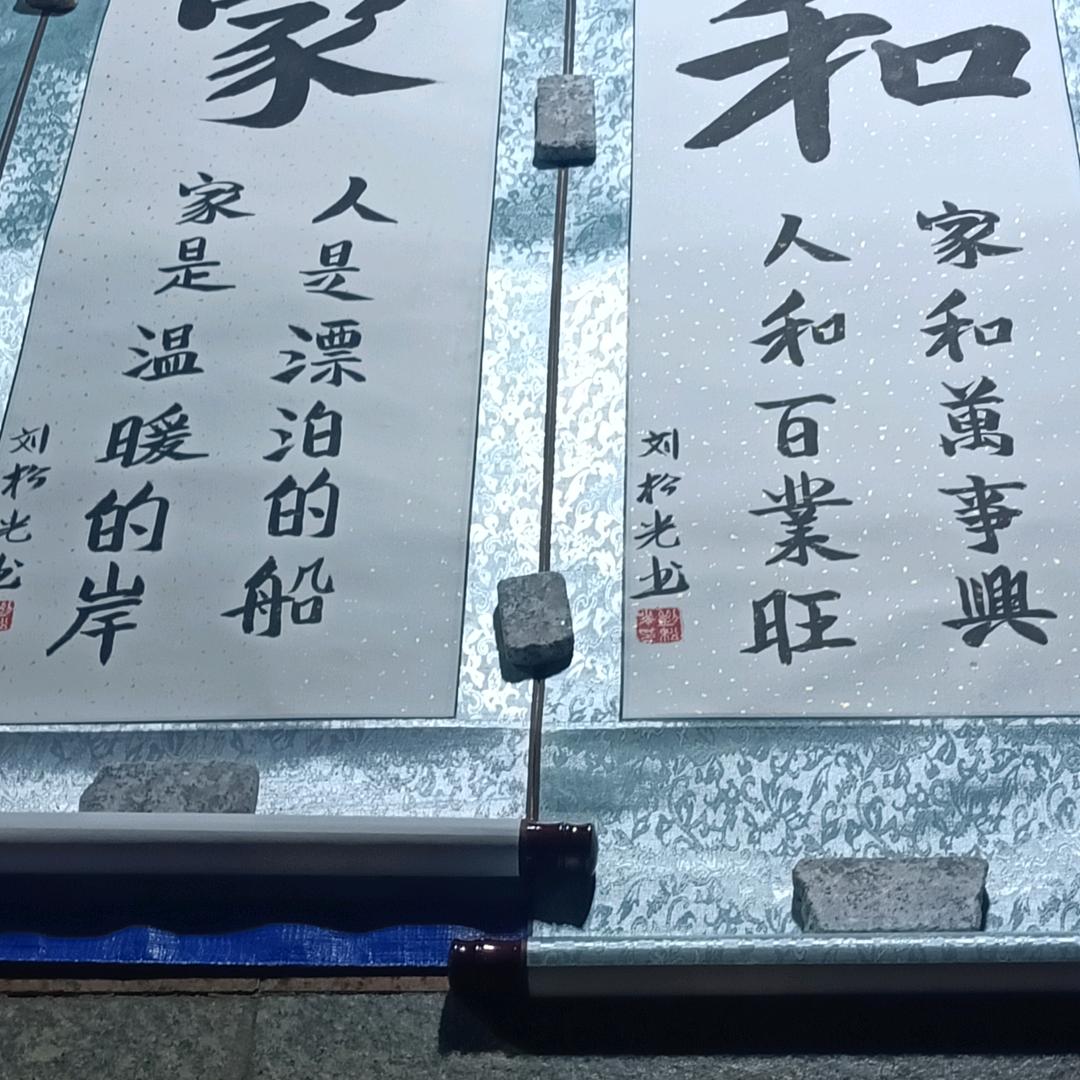 和
家和萬事興
人和百業旺
刘松光书
家
人是漂泊的船
家是温暖的岸
刘松光书